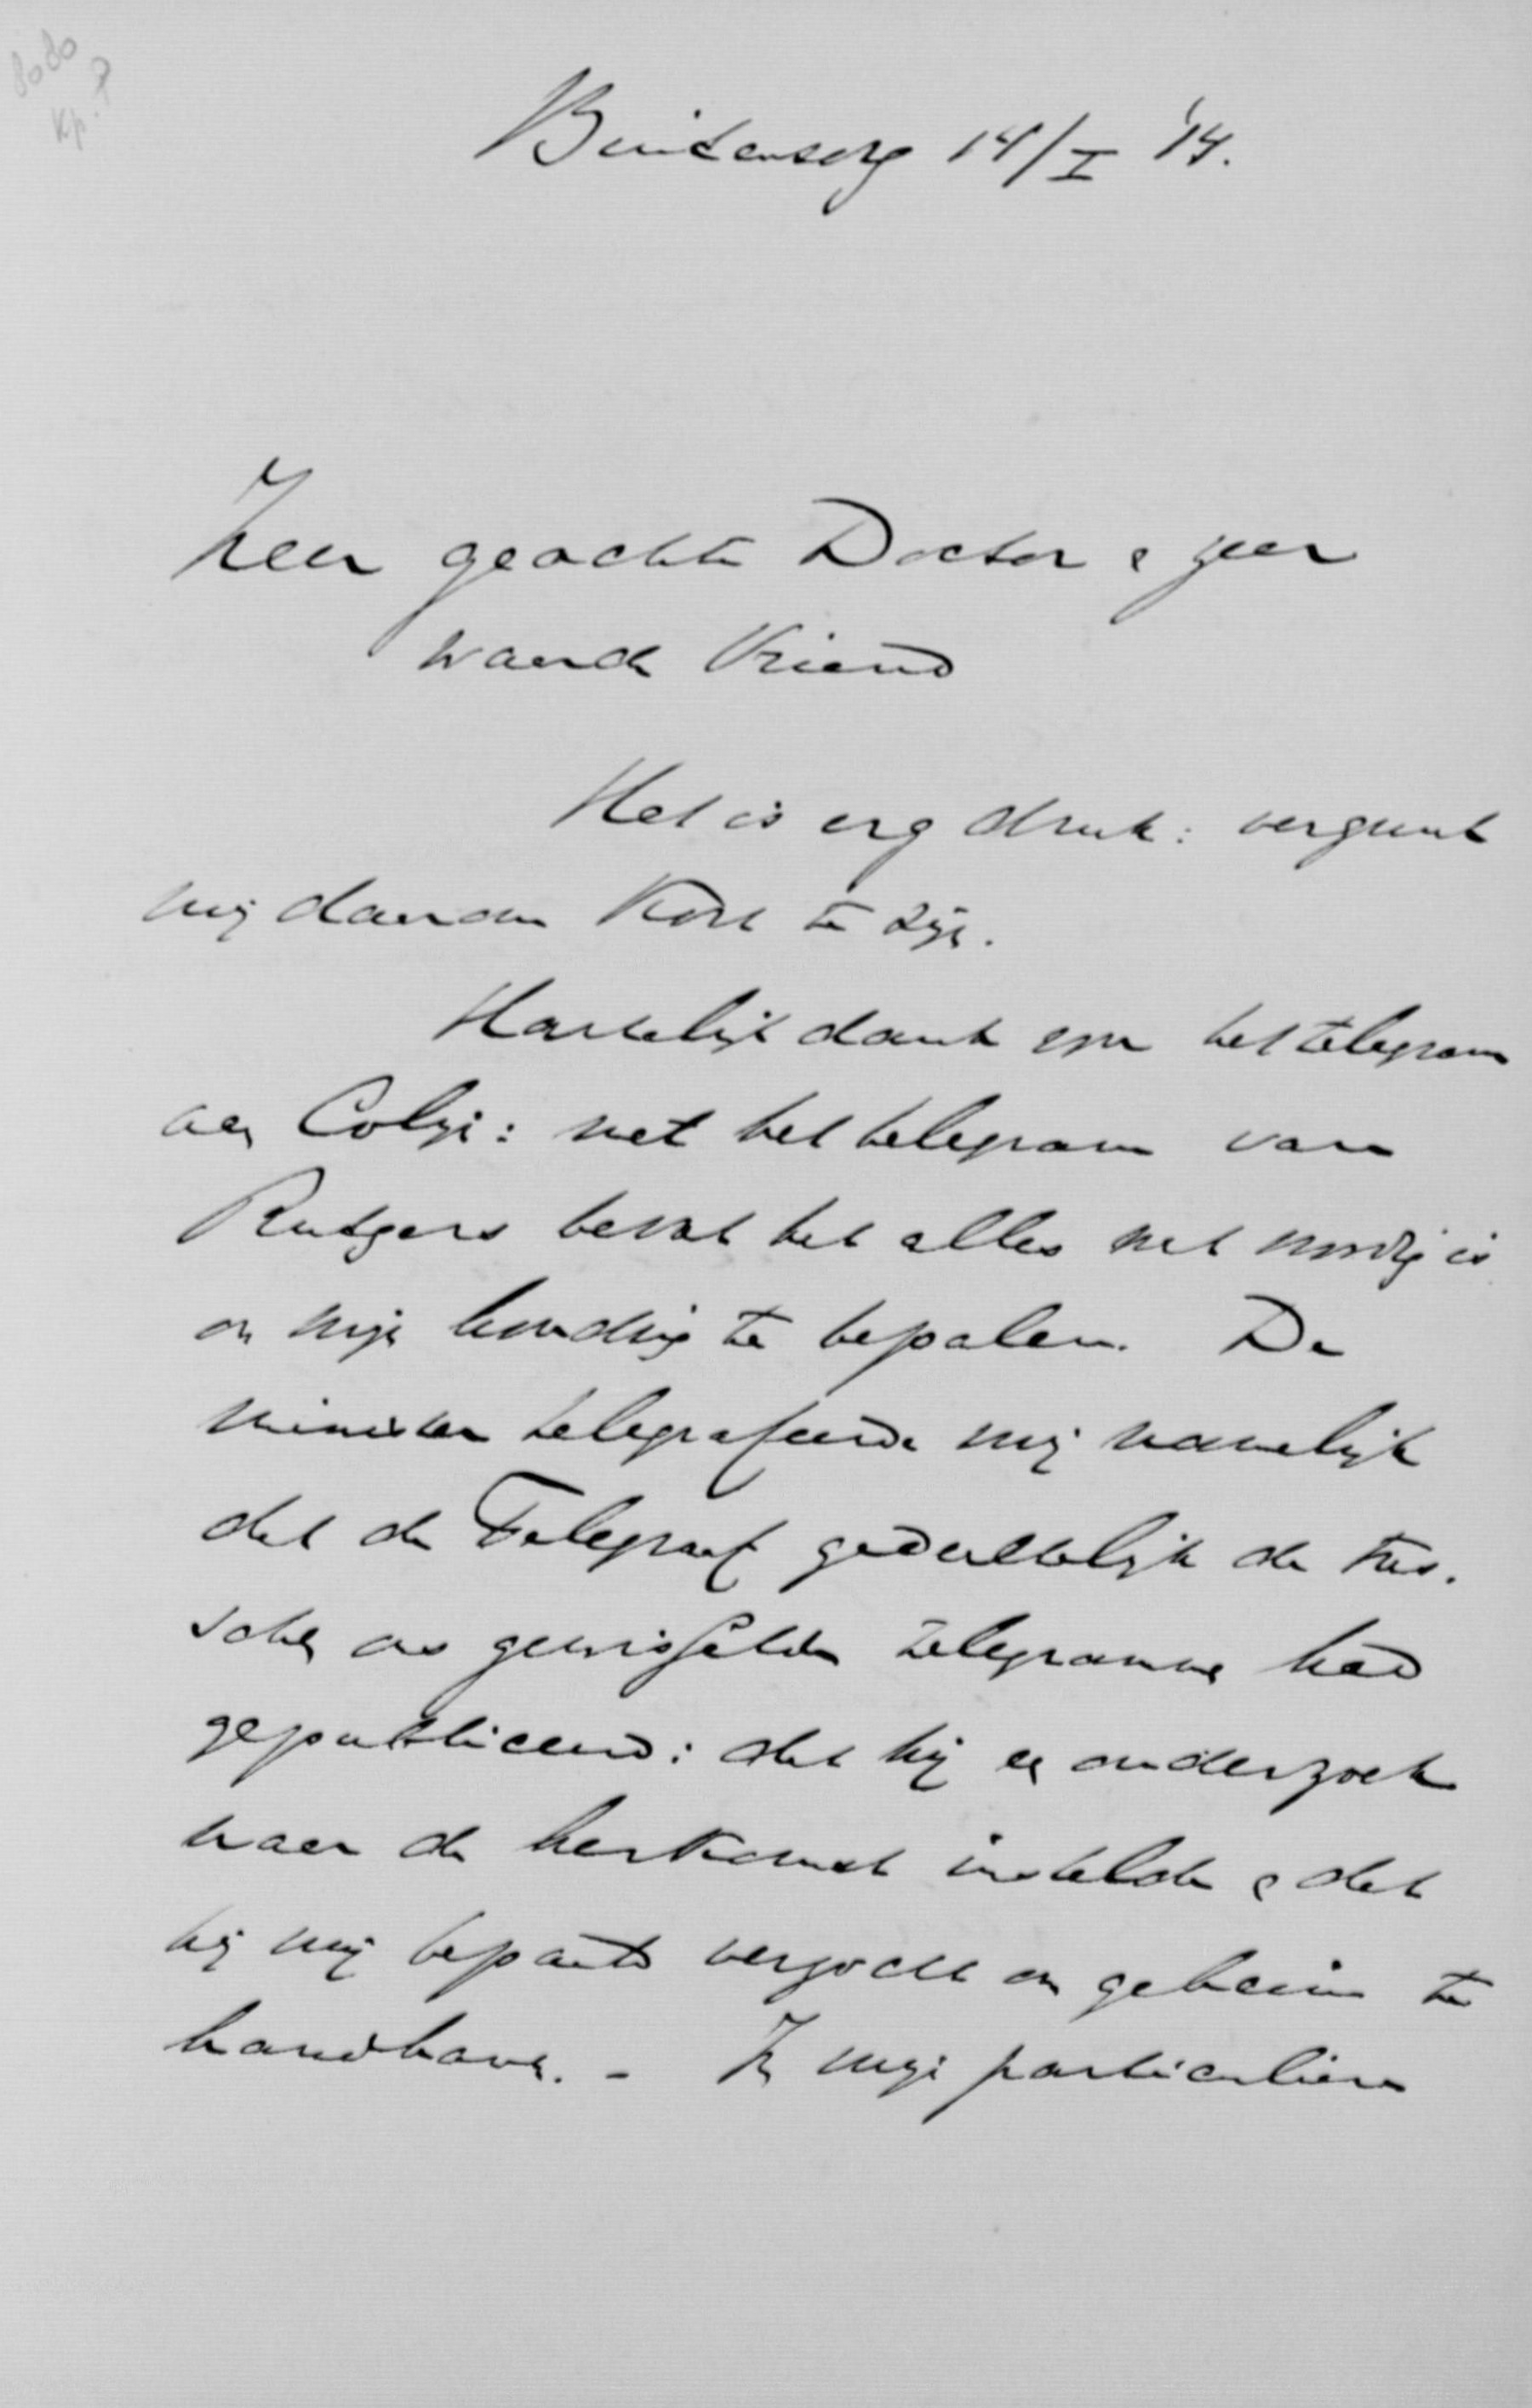 8080
Kp. 8
Buitenzorg 14/I '14.
Zeer geachte Doctor & zeer
waarde Vriend
Het is erg druk: vergunt
mij daarom kort te zijn.
Hartelijk dank voor het telegram
aan Colijn: met het telegram van
Rutgers bevat het alles wat noodig is
om mijn houding te bepalen. De
minister telegrafeerde mij namelijk
dat de Telegraaf gedeeltelijk de tus-
schen ons gewisselde telegrammen had
gepubliceerd: dat hij een onderzoek
naar de herkomst instelde & dat
hij mij bepaald verzocht om geheim te
handhaven. - In mijn particuliere